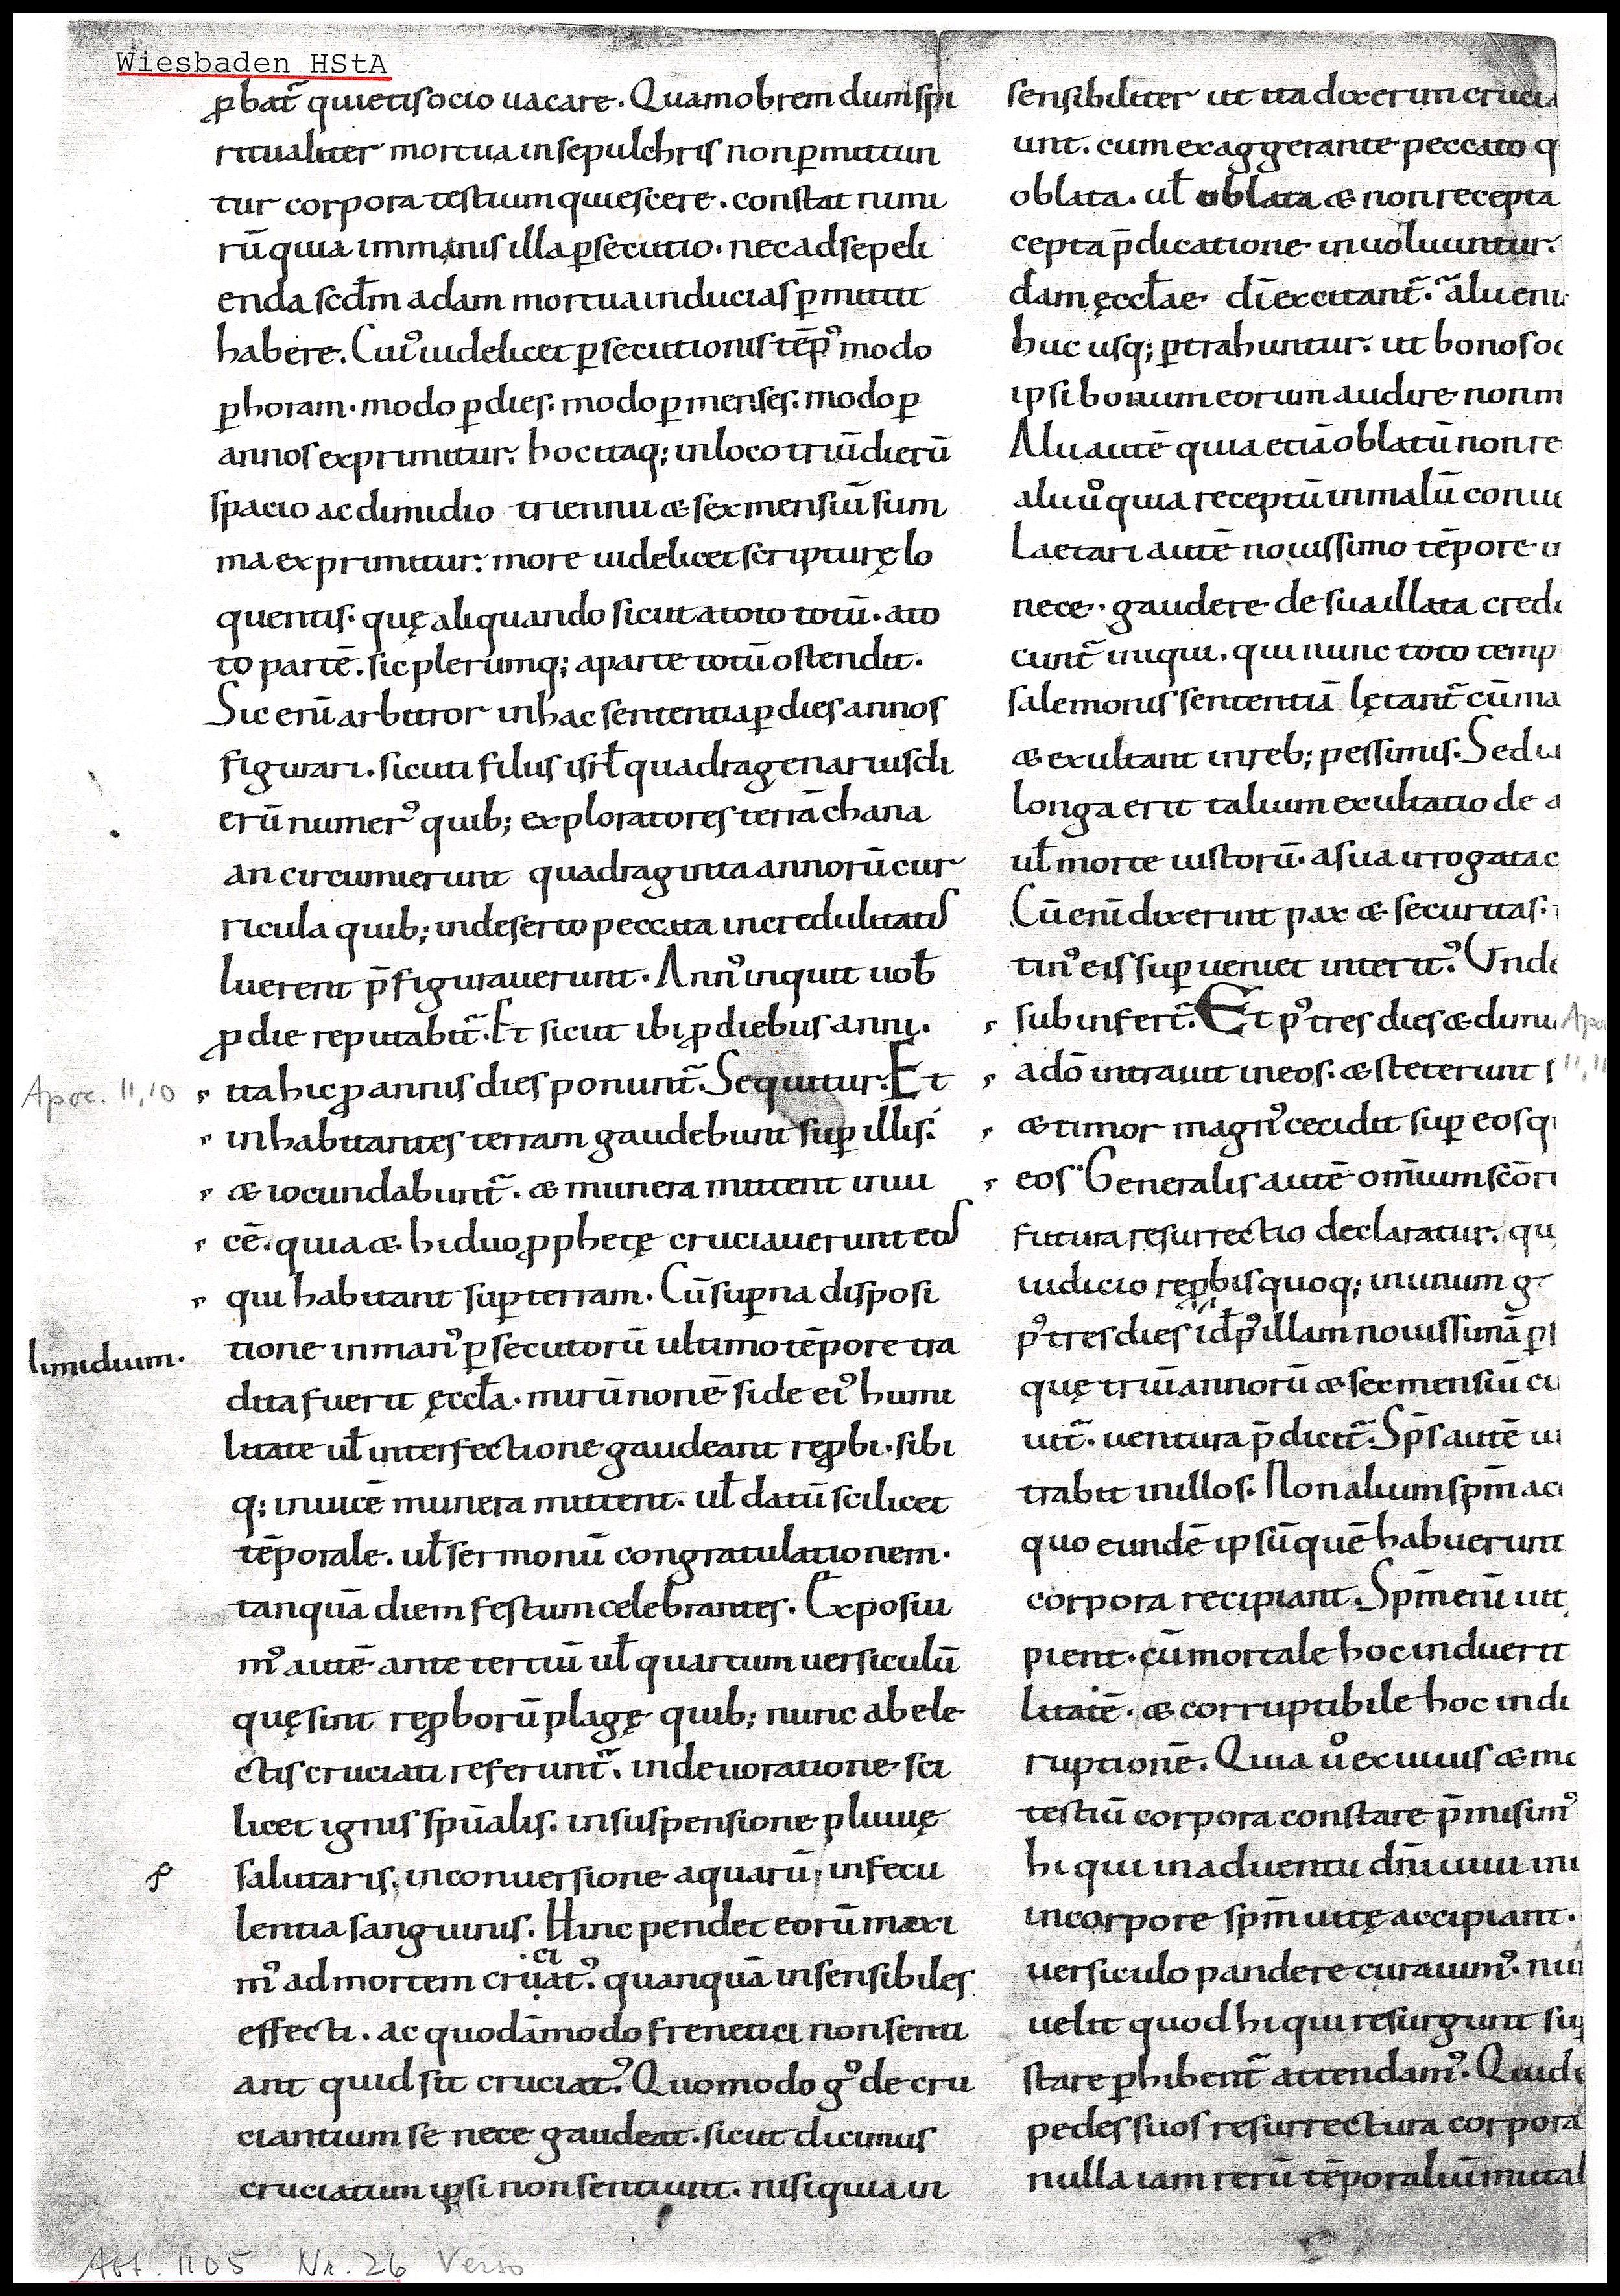 Wiesbaden HStA
ꝓbat᷑ quieti socio uacare. Quamobrem dum spi
ritualiter mortua in sepulchris non ꝑmittun
tur corpora testium quiescere. constat nimi
rū quia immanis illa ꝑsecutio. nec ad sepeli
enda scdm̄ adam mortua inducias ꝑmittit
habere. Cui᾽ uidelicet ꝑsecutionis tēp᾽ modo
ꝑ horam. modo ꝑ dies. modo ꝑ menses. modo ꝑ
annos exprimitur. hoc itaq; in loco triū dierū
spacio ac dimidio triennii æ sex mensiū sum
ma exprimitur. more uidelicet scripturę lo
quentis. quę aliquando sicut a toto totū. a to
to partē. sic plerumq; a parte totū ostendit.
Sic eni᷒ arbitror in hac sententia ꝑ dies annos
figurari. sicuti filiis isrł quadragenarius di
erū numer᾽ quib; exploratores terrā chana
an circumierunt quadraginta annorū cur
ricula quib; in deserto peccata incredulitatis
luerent p̄figurauerunt. Ann᾽ inquit uob̄
ꝓ die reputabit᷑. Et sicut ibi ꝑ diebus anni.
Apoc. 11,10
ita hic ꝓ annis dies ponunt᷑. Sequitur. Et
inhabitantes terram gaudebunt suꝑ illis.
æ iocundabunt᷑. æ munera mittent inui
cē. quia æ hi duo ꝓphetę cruciauerunt eos
qui habitant suꝑ terram. Cū suꝑna disposi
limidium.
tione in man᾽ ꝑsecutorū ultimo tēpore tra
dita fuerit ęccła. mirū non ē si de ei᾽ humi
litate uł interfectione gaudeant reꝓbi. sibi
q; inuicē munera mittent. uł datū scilicet
tēporale. uł sermonū congratulationem.
tanquā diem festum celebrantes. Exposui
m᾽ autē ante tertiū uł quartum uersiculū
quę sint reꝓborū plagę quib; nunc ab ele
ctis cruciati referunt᷑. in deuoratione sci
licet ignis spūalis. in suspensione pluuię
salutaris. in conuersione aquarū. in fecu
lentia sanguinis. Hinc pendet eorū maxi
ci
m᾽ ad mortem cruat᾽. quanquā insensibiles
effecti. ac quodāmodo frenetici non senti
ant quid sit cruciat᾽. Quomodo g᾽ de cru
ciantium se nece gaudeat. sicut dicimus
cruciatum ipsi non sentiunt. nisi quia in
sensibiliter ut ita dixerim crucia
unt. cum exaggerante peccato q
oblata. uł oblata æ non recepta
cepta p̄dicatione inuoluuntur.
dam ęccłae di᷒ excitant᷑. alii eni
huc usq; ꝑtrahuntur. ut bono so
ipsi bonum eorum audire non m
Alii autē quia etiā oblatū non re
alii u᷒o quia receptū in malū conue
Laetari autē nouissimo tēpore
nece. gaudere de sua illata credi
cunt᷑ iniqui. qui nunc toto temp
sale mortis sententiā lętant᷑ cū ma
æ exultant in reb; pessimis. Sed
longa erit talium exultatio de
uł morte iustorū. a sua irrogata
Cū eni᷒ dixerint pax æ securitas.
tin᾽ eis suꝑueniet interit᾽. Unde
subinfert᷑. Et p᾽ tres dies æ dimi
Apoc
a dō intrauit in eos. æ steterunt s
11,11
æ timor magn᾽ cecidit suꝑ eos q
eos. Generalis autē omīum scōr
futura resurrectio declaratur. qu
iudicio reꝓbis quoq; in unum g
p᾽ tres dies id̄ p᾽ illam nouissimā ꝑs
quę triū annorū æ sex mensiū
uit᷑. uentura p̄dicit᷑. Sp̄s autē ui
trabit in illos. Non alium spm̄ ac
quo eundē ipsū quē habuerunt
corpora recipiant. Spm̄ eni᷒ uit
pient. cū mortale hoc induerit
litatē. æ corruptibile hoc indu
ruptionē. Quia u᷒o ex uiuis æ mo
testiū corpora constare p̄misim᾽
hi qui in aduentu dn̄i uiui in
in corpore spm̄ uitę accipiant.
uersiculo pandere curauim᾽. nu
uelit quod hi qui resurgunt su
stare ꝑhibent᷑ attendam᾽. Quid
pedes suos resurrectura corpora
nulla iam rerū tēporaliū mutal
Abt. 1105 Nr. 26 Verso